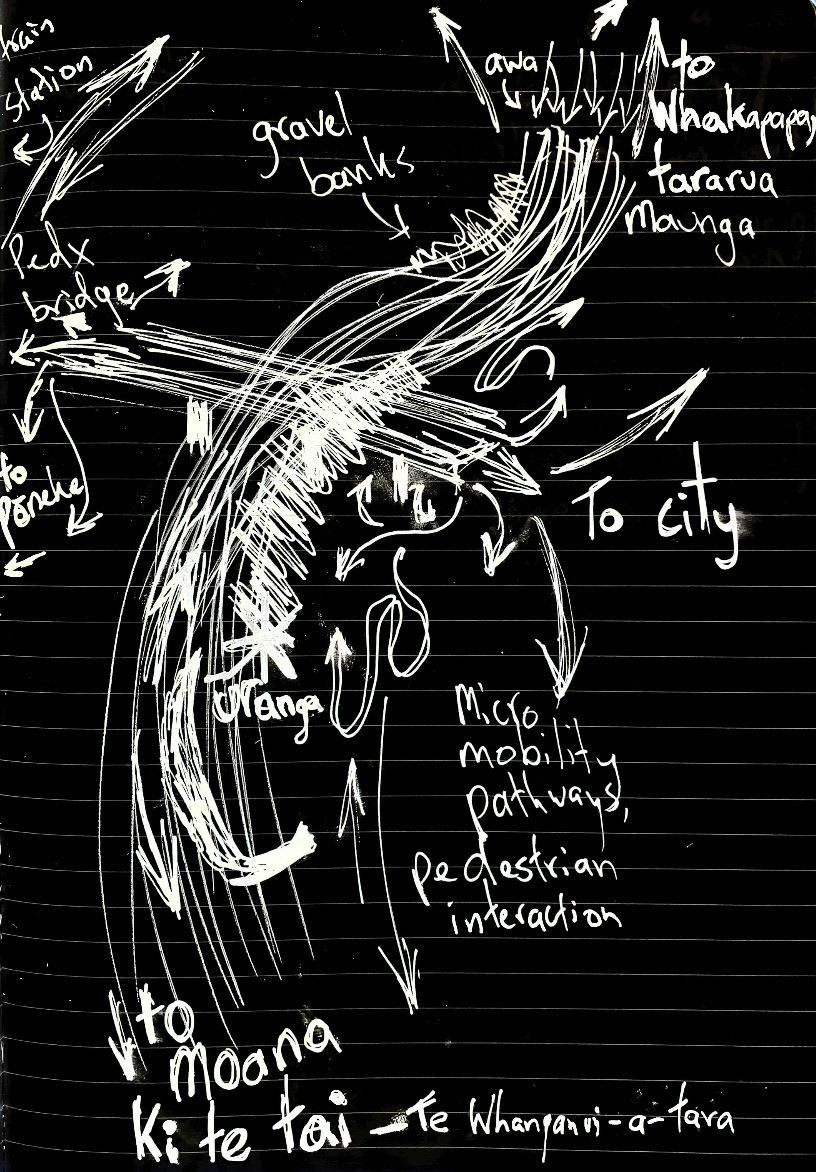 train
station
awa
to
Whakapapa,
tararua
Maunga
gravel
banks
Pedx
bridge
to
Pōneke
To city
Ūranga
Micro
mobility
pathways,
pedestrian
interaction
to
Moana
Ki te tai – Te Whanganui-a-tara